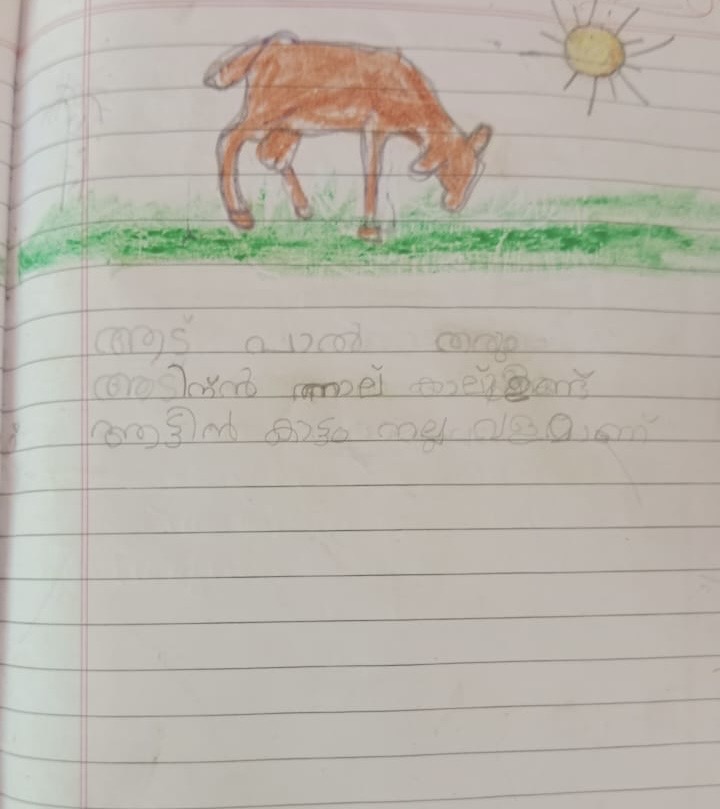 ആട് പാൽ തരും
ആടിന്ൻ നാല് കാല് ഉണ്ട്
ആട്ടിൻ കാട്ടം നല്ല വളമാണ്